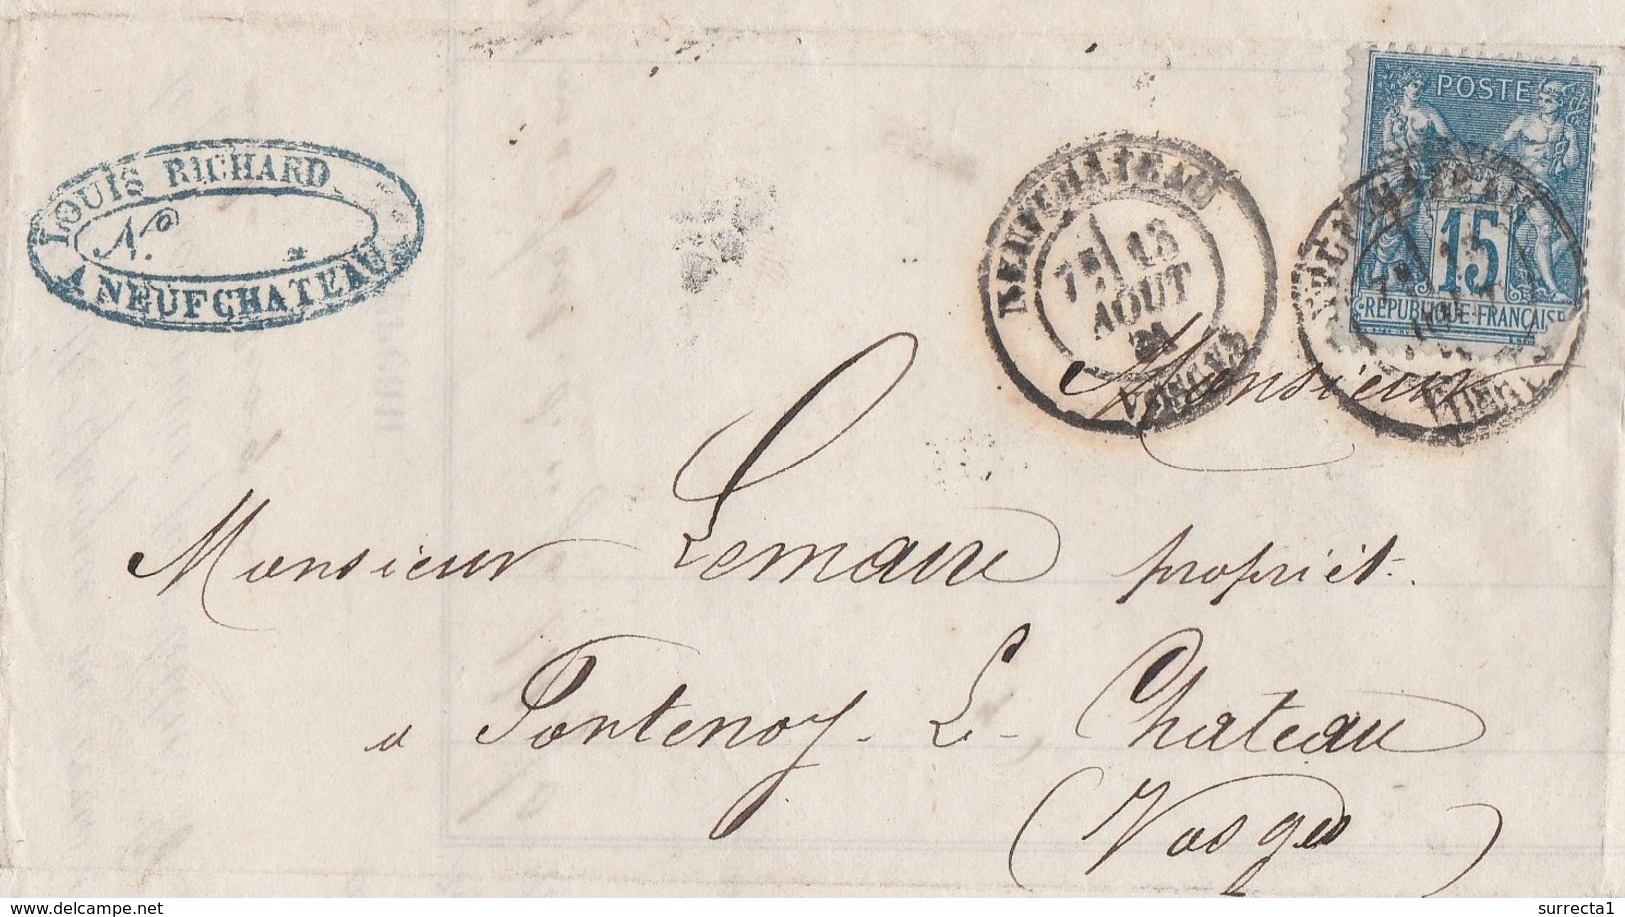 LOUIS RICHARD
N.o
A NEUFCHATEAU
NEUFCHATEAU
7E 13
AOUT
81
VOSGES
POSTE
15
REPUBLIQUE FRANÇAISE
Monsieur
Monsieur Lemaire propriét.
à Fontenoy-Le-Chateau
(Vosges)
www.delcampe.net
surrecta1